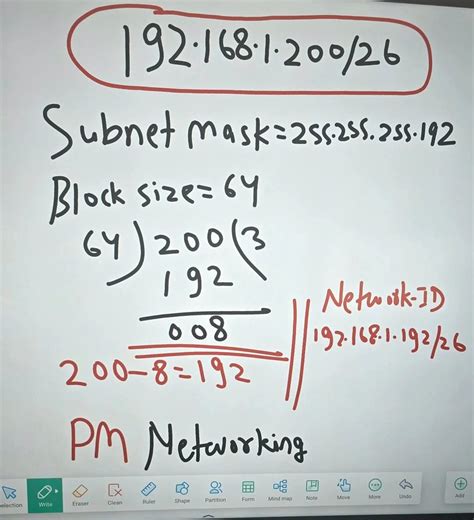 192.168.1.200/26
Subnet mask=255.255.255.192
Block size=64
64)200(3
192
008
200-8=192
Network-ID
192.168.1.192/26
PM Networking
Selection Write Eraser Clean Ruler Shape Partition Form Mind map Note Move More Undo Add